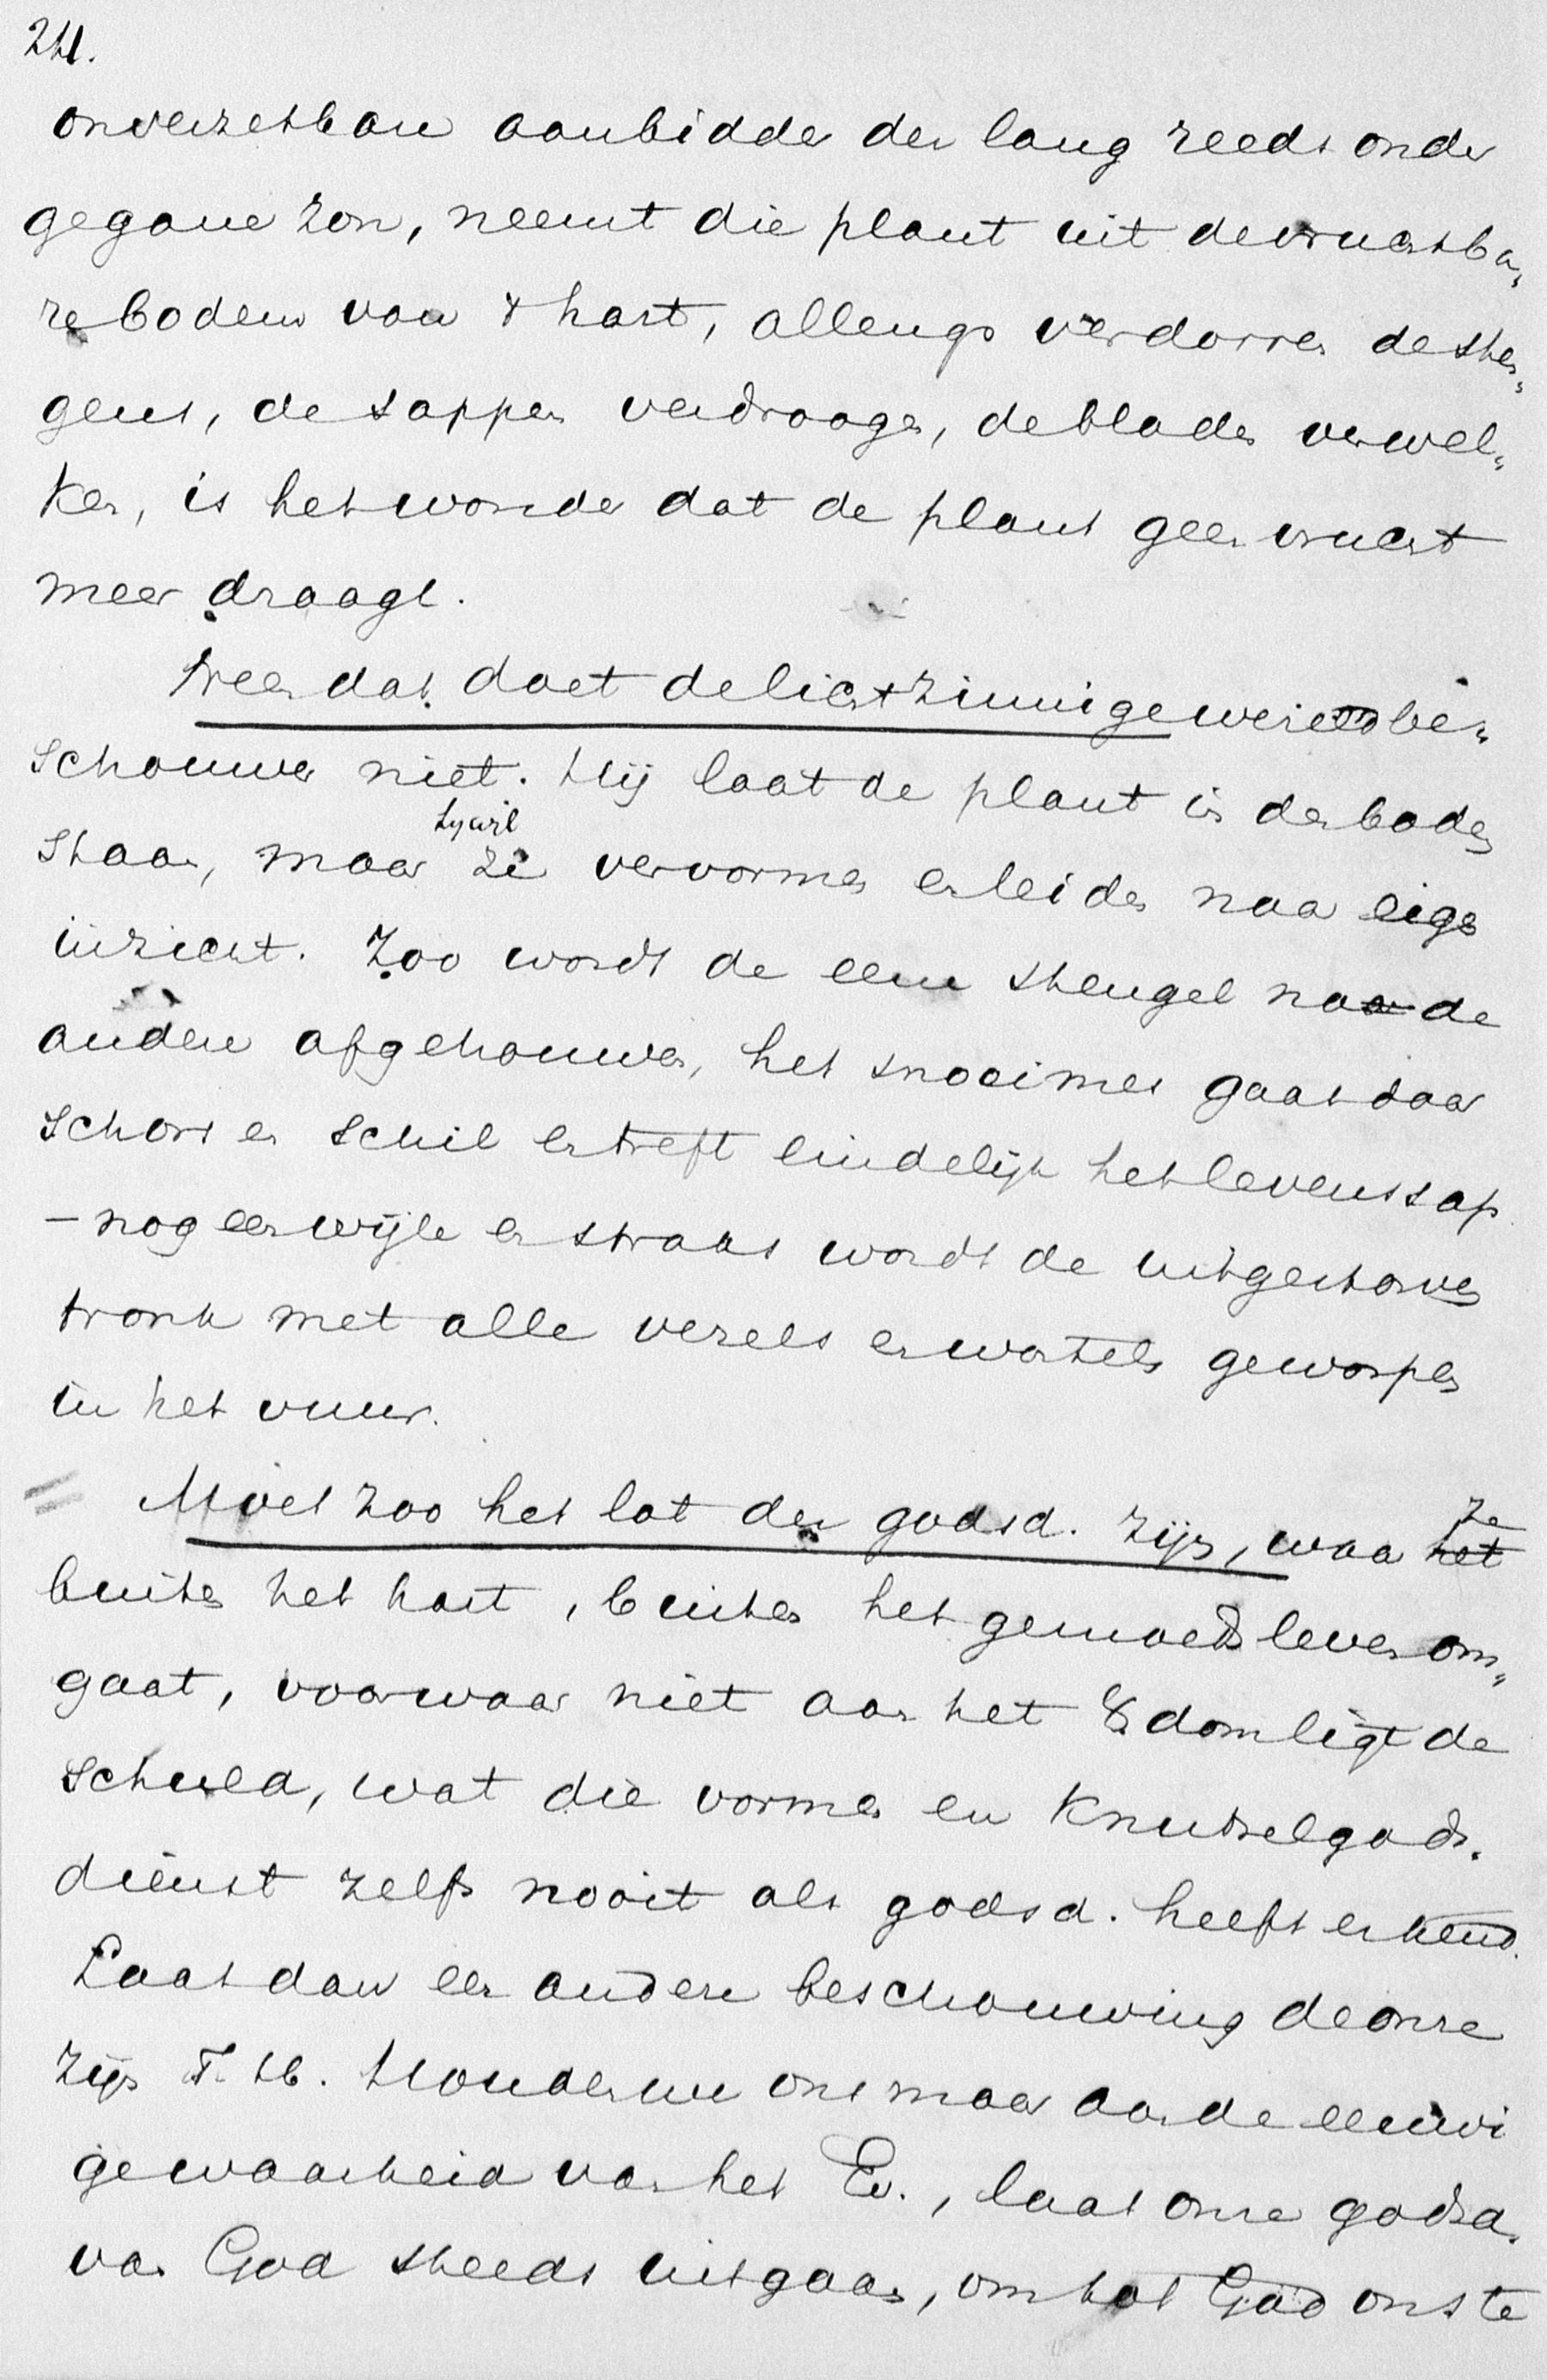 24.
onverzetbare aanbidder der lang reeds onder
gegane zon, neemt die plant uit de vruchtba„
re bodem van 't hart, allengs verdorren de sten„
gels, de sappen verdroogen, de bladen verwel„
ken, is het wonder dat de plant geen vrucht
meer draagt.
Neen dat doet de lichtzinnige wereldbe„
schouwer niet. Hij laat de plant in den bodem
hij wil
staan, maar ze vervormen en leiden naar eigen
inzicht. Zoo wordt de eene stengel na de
andere afgehouwen, het snoeimes gaat door
schors en schil en treft eindelijk het levenssap
– nog een wijle en straks wordt de uitgestorven
tronk met alle vezels en wortels geworpen
in het vuur.
= Moet zoo het lot der godsd. zijn, waar het
ze
buiten het hart, buiten het gemoedsleven om„
gaat, voorwaar niet aan het Xdom ligt de
schuld, wat die vormen en knutselgods„
dienst zelfs nooit als godsd. heeft erkend.
Laat dan een andere beschouwing de onze
zijn T. H. Houden we ons maar aan de eeuwi
ge waarheid van het Ev., laat onze godsd.
van God steeds uitgaan, om tot God ons te